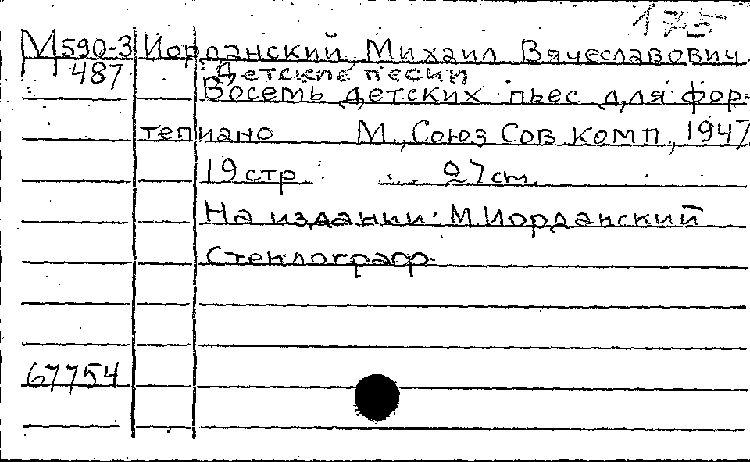 175
М590-3 Иорданский, Михаил Вячеславович
487 Детские песни
Восемь детских пьес для фор-
тепиано М., Союз Сов комп, 1947
19 стр. 27 cm.
На издании: М. Иорданский
Стеклограф.
67754